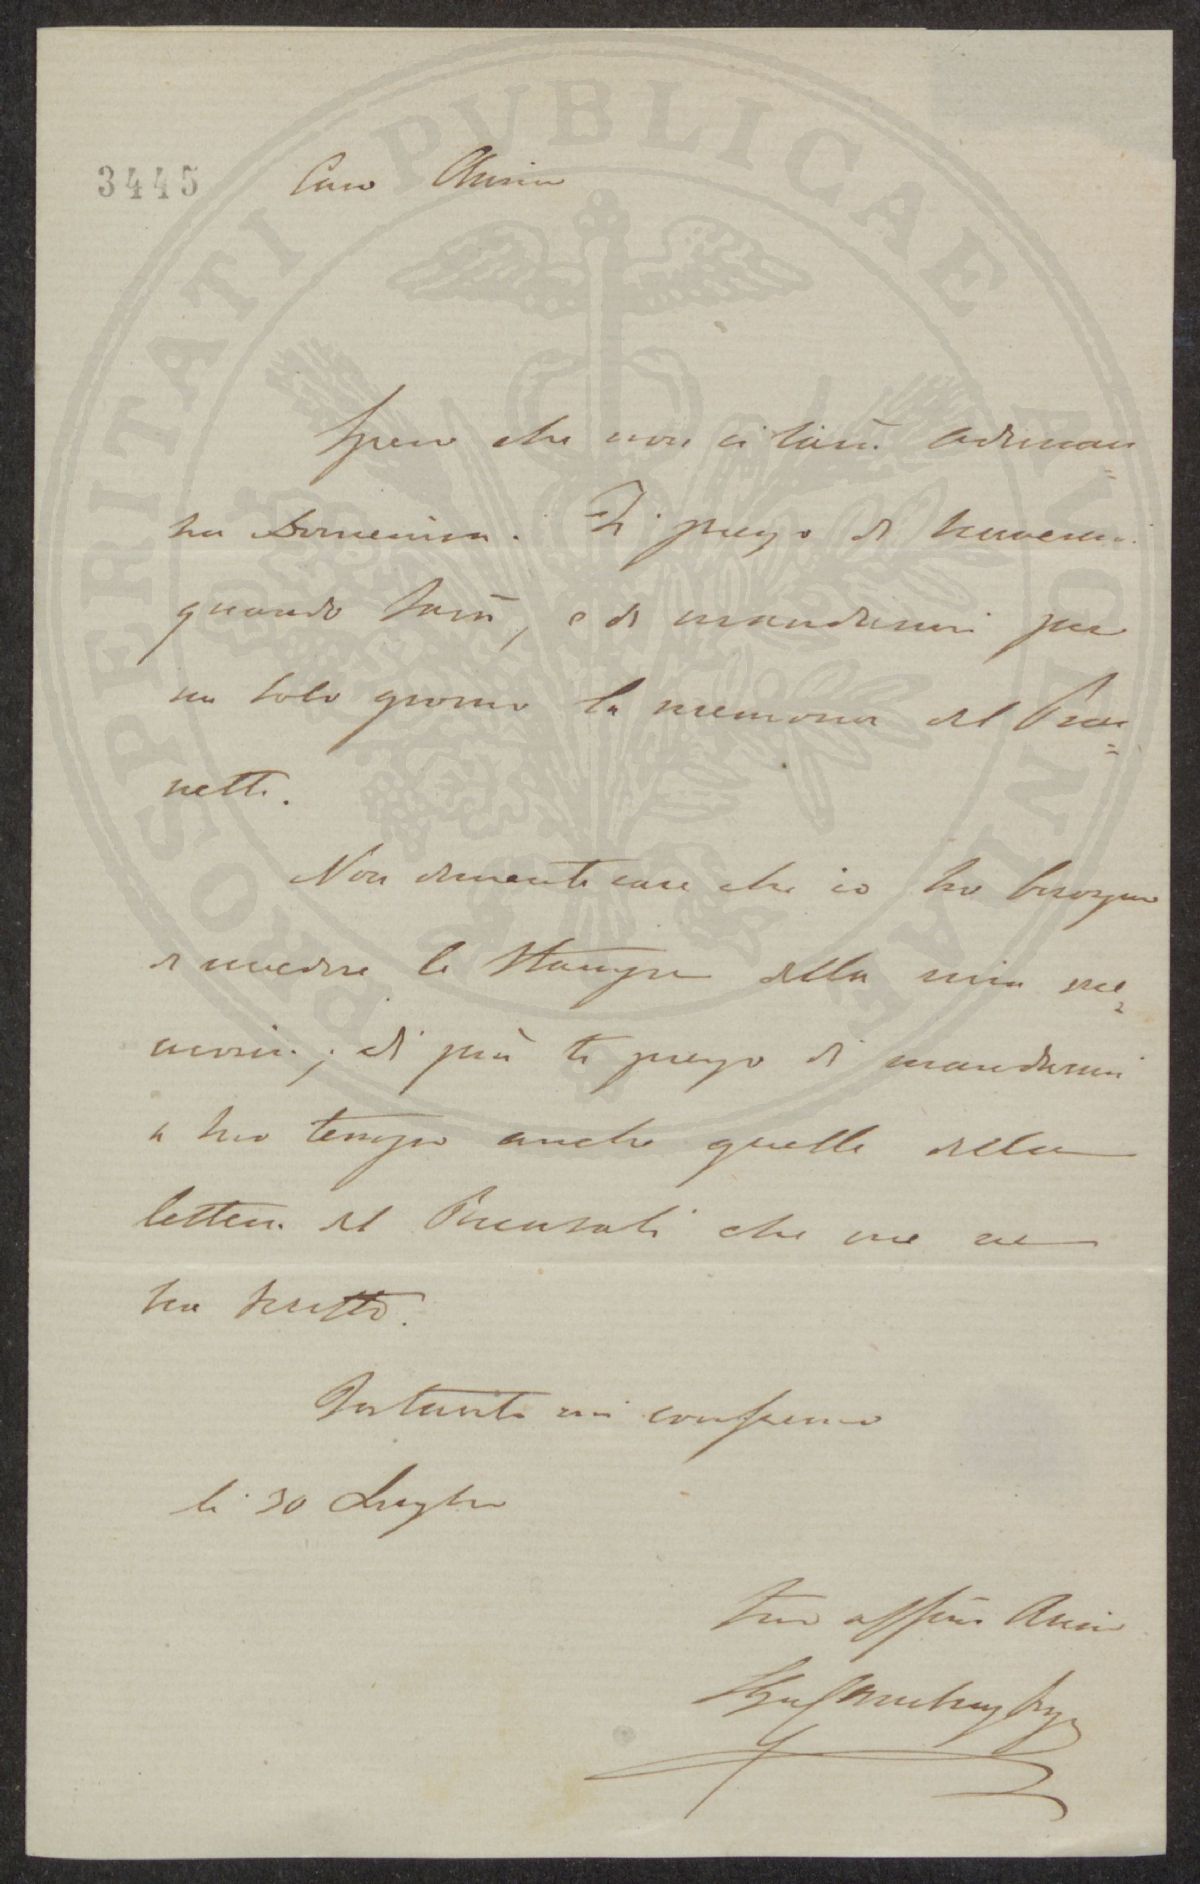 PROSPERITATI PUBLICAE AUGENDAE
3445 Caro Amico
Spero che non ci sarà adunan=
za Domenica. Ti prego di
quando sarà, e di mandarmi per
un solo giorno la memoria del
netti.
Non dimenticare che io ho bisogno
di rivedere le stampe della mia me=
moria; di più ti prego di mandarmi
a suo tempo anche quelle della
lettera del che me ne
ha scritto.
Pertanto mi confermo
li 30 Luglio
Tuo affmo Amico